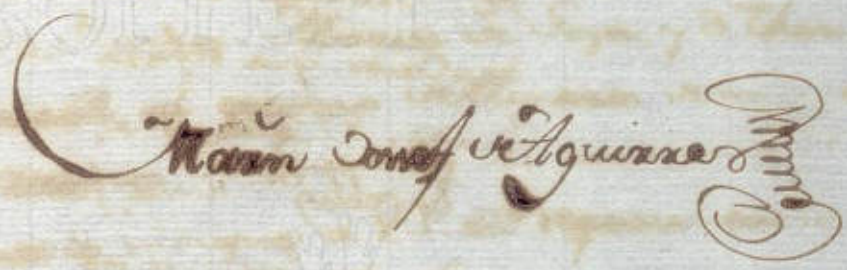 Martin Josef de Aguirre